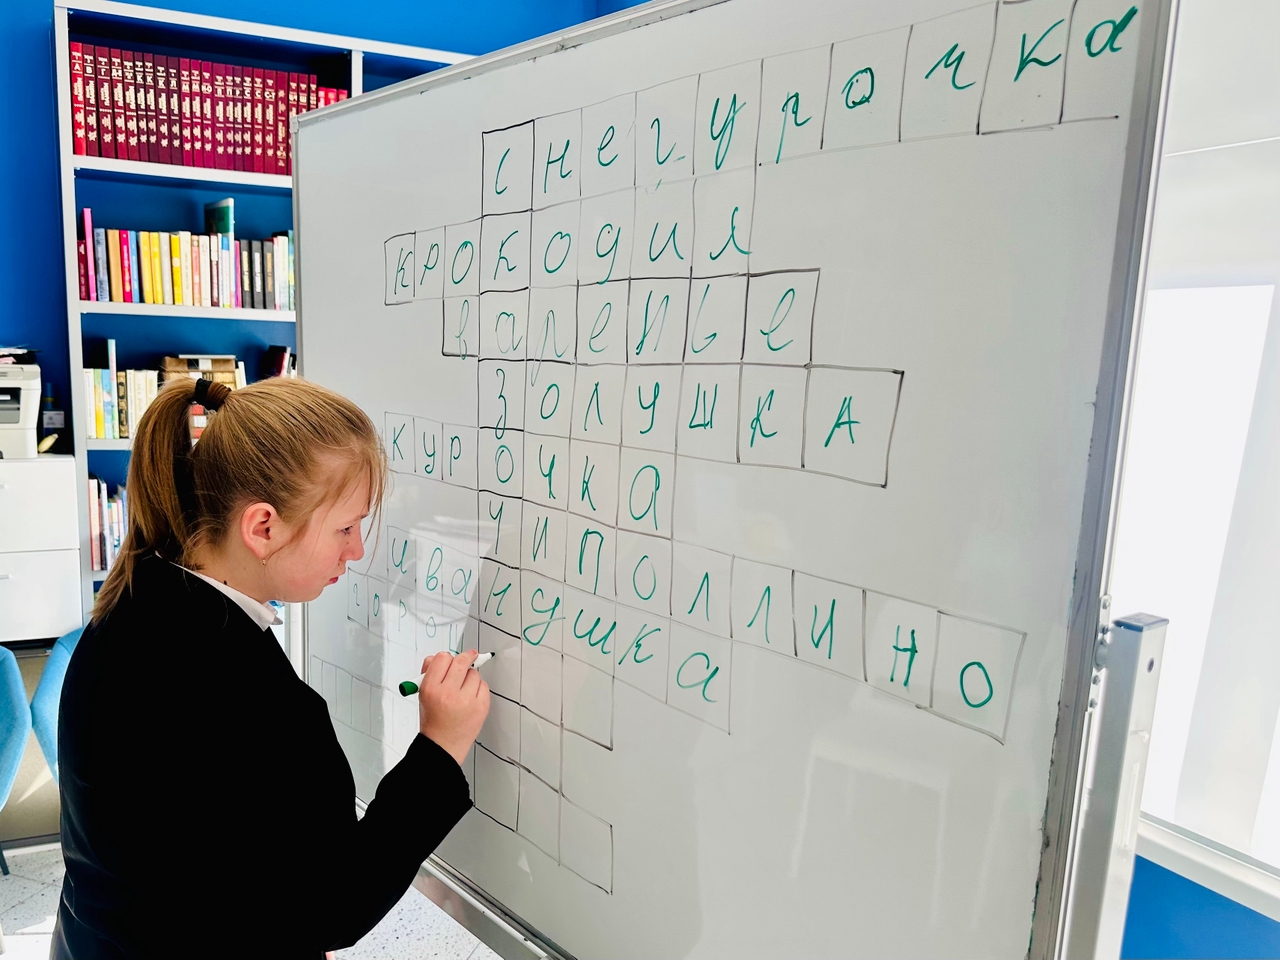 снегурочка
крокодил
варенье
золушкА
курочка
чиполлино
иванушка
горош